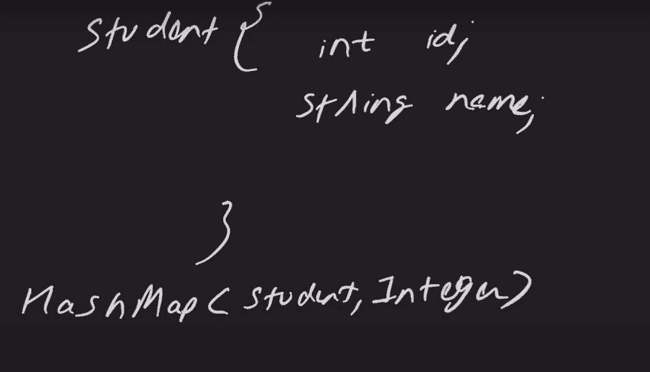 Student { int id;
String name;
}
HashMap( Student, Integer)